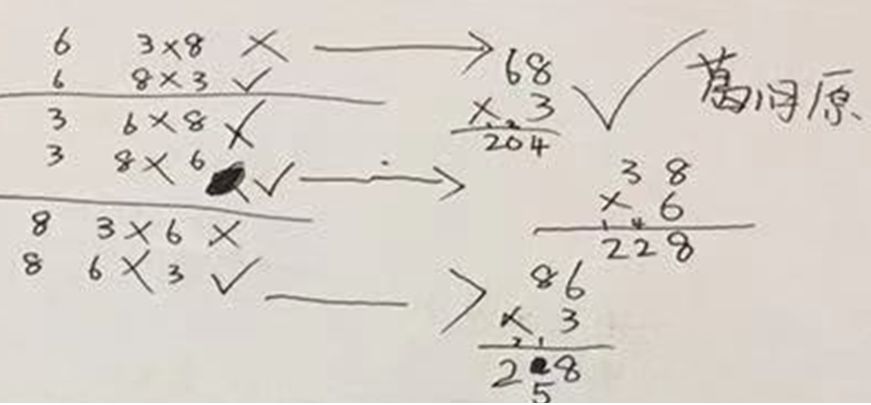 6 3×8 ×
6 8×3 ✓
3 6×8 ×
3 8×6 ✓
8 3×6 ×
8 6×3 ✓
68
× 3
204
✓
38
× 6
228
86
× 3
258